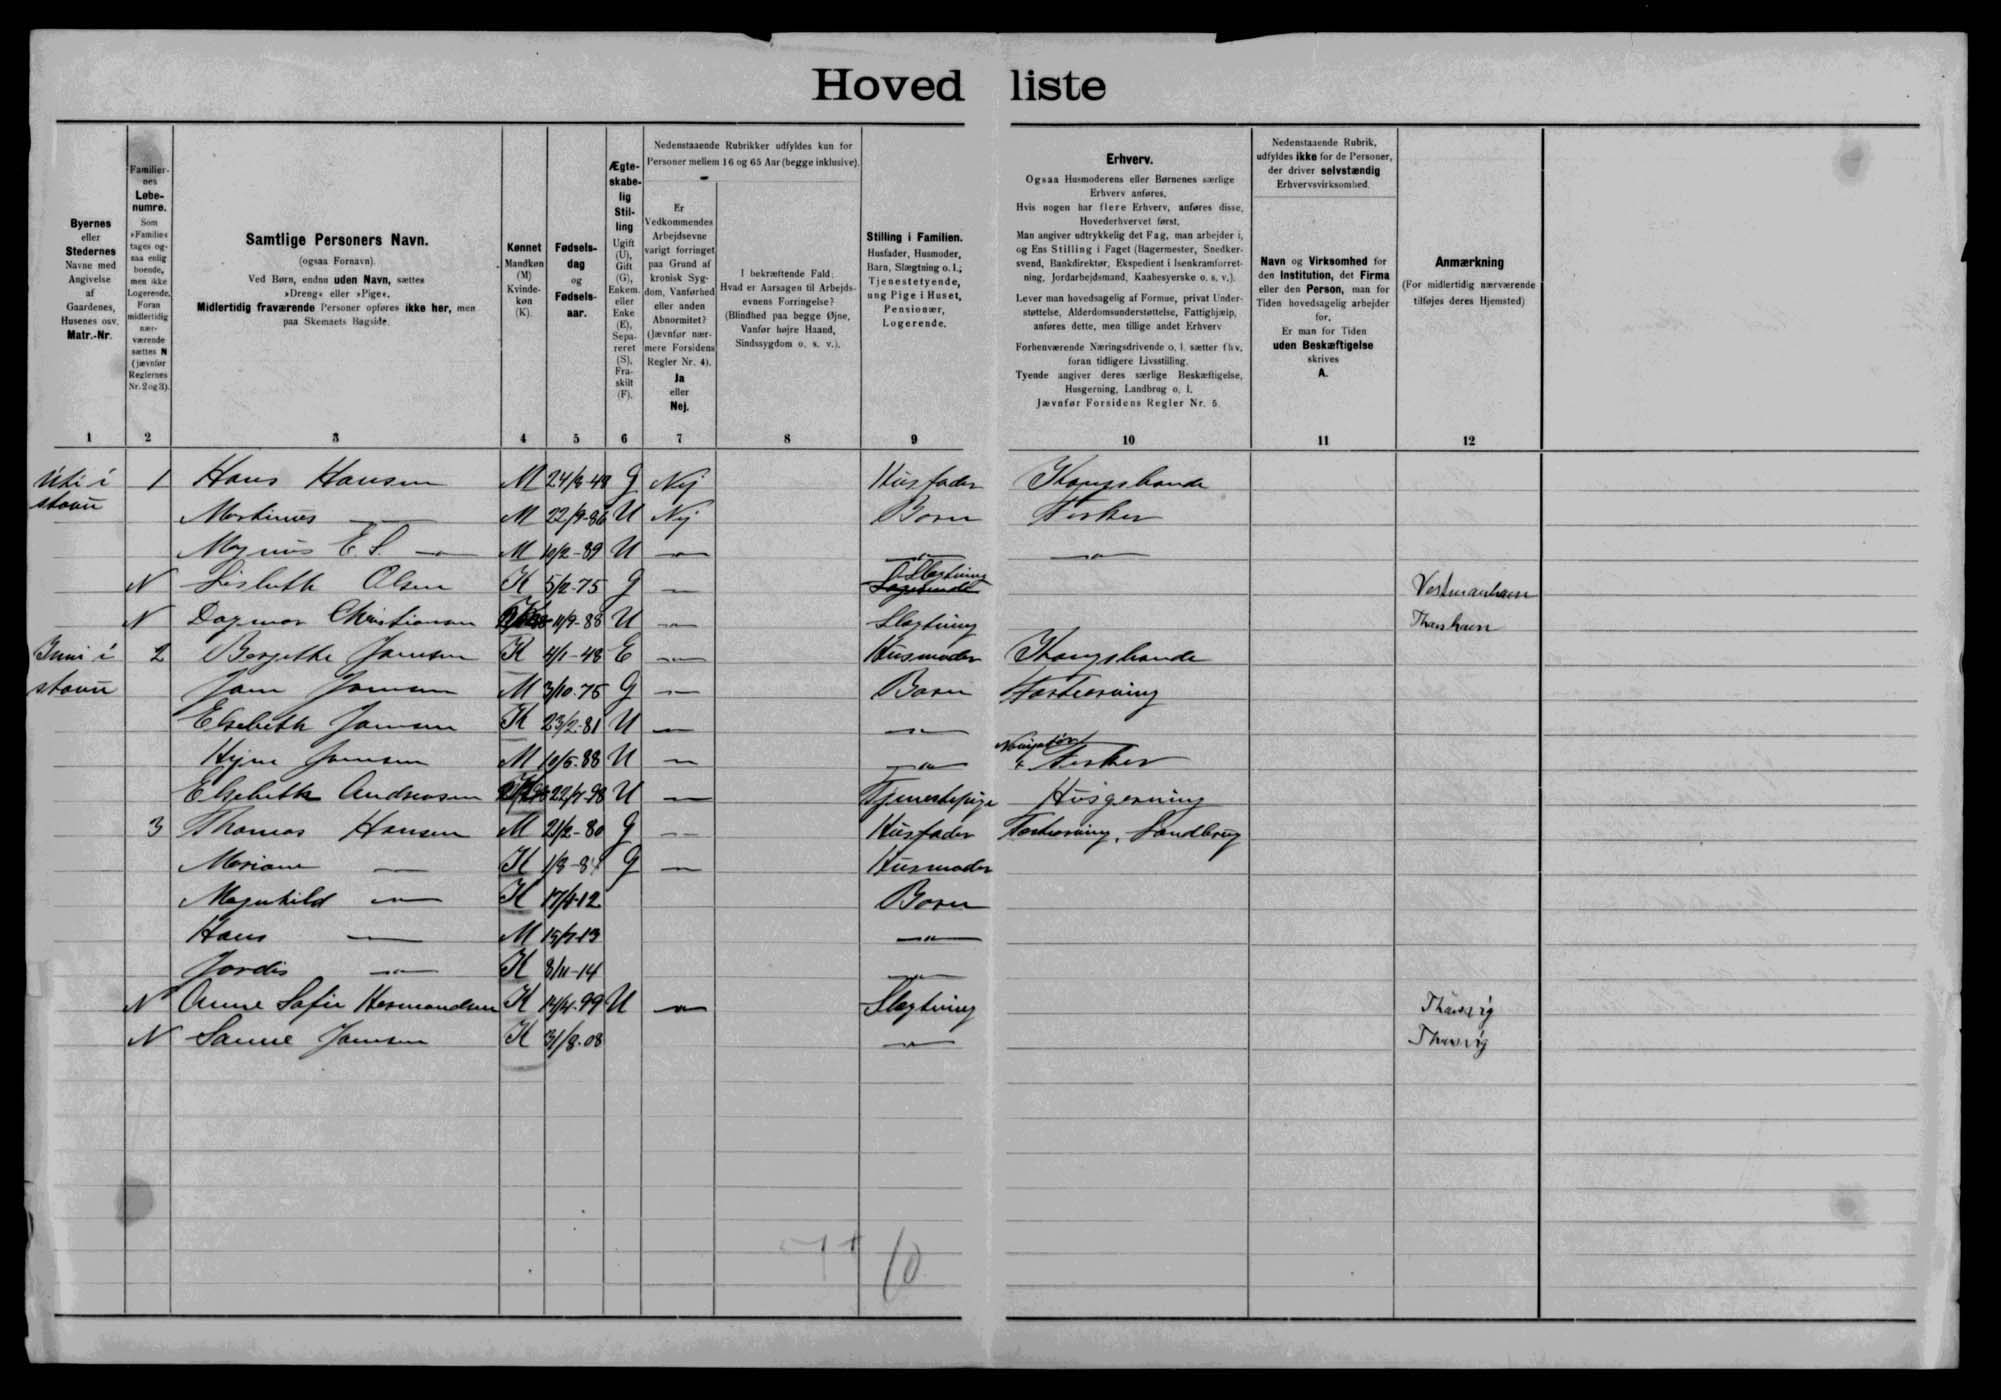 Hovedliste
Byernes
eller
Stedernes
Navne med
Angivelse
af
Gaardenes,
Husenes osv.
Matr.-Nr.
Familier-
nes
Løbe-
numre.
Som
»Familie«
tages og-
saa enlig
boende,
men ikke
Logerende.
Foran
midlertidig
nær-
værende
sættes N
(jævnfør
Reglernes
Nr. 2 og 3).
Samtlige Personers Navn.
(ogsaa Fornavn).
Ved Børn, endnu uden Navn, sættes
»Dreng« eller »Pige«.
Midlertidig fraværende Personer opføres ikke her, men
paa Skemaets Bagside.
Kønnet
Mandkøn
(M)
Kvinde-
køn
(K).
Fødsels-
dag
og
Fødsels-
aar.
Ægte-
skabe-
lig
Stil-
ling
Ugift
(U),
Gift
(G),
Enkem.
eller
Enke
(E),
Sepa-
reret
(S),
Fra-
skilt
(F).
Nedenstaaende Rubrikker udfyldes kun for
Personer mellem 16 og 65 Aar (begge inklusive).
Er
Vedkommendes
Arbejdsevne
varigt forringet
paa Grund af
kronisk Syg-
dom, Vanførhed
eller anden
Abnormitet?
(Jævnfør nær-
mere Forsidens
Regler Nr. 4).
Ja
eller
Nej.
I bekræftende Fald:
Hvad er Aarsagen til Arbejds-
evnens Forringelse?
(Blindhed paa begge Øjne,
Vanfør højre Haand,
Sindssygdom o. s. v.).
Stilling i Familien.
Husfader, Husmoder,
Barn, Slægtning o. l.;
Tjenestetyende,
ung Pige i Huset,
Pensionær,
Logerende.
Erhverv.
Ogsaa Husmoderens eller Børnenes særlige
Erhverv anføres.
Hvis nogen har flere Erhverv, anføres disse,
Hovederhvervet først.
Man angiver udtrykkelig det Fag, man arbejder i,
og Ens Stilling i Faget (Bagermester, Snedker-
svend, Bankdirektør, Ekspedient i Isenkramforret-
ning, Jordarbejdsmand, Kaabesyerske o. s. v.).
Lever man hovedsagelig af Formue, privat Under-
støttelse, Alderdomsunderstøttelse, Fattighjælp,
anføres dette, men tillige andet Erhverv
Forhenværende Næringsdrivende o. l. sætter fhv.
foran tidligere Livsstilling.
Tyende angiver deres særlige Beskæftigelse,
Husgerning, Landbrug o. l.
Jævnfør Forsidens Regler Nr. 5.
Nedenstaaende Rubrik,
udfyldes ikke for de Personer,
der driver selvstændig
Erhvervsvirksomhed.
Navn og Virksomhed for
den Institution, det Firma
eller den Person, man for
Tiden hovedsagelig arbejder
for.
Er man for Tiden
uden Beskæftigelse
skrives
A.
Anmærkning
(For midlertidig nærværende
tilføjes deres Hjemsted)
1 2 3 4 5 6 7 8 9 10 11 12
Úti i 1 Hans Hansen M G Nej Husfader Kongsbonde
stovu Martinus — M 22/9-86 U Nej Barn Fisker
Magnus E. S. —"— M 10/2-89 U —"— —"— —"—
N Lisbeth Olsen K 5/2-75 G —"— Slægtning Vestmanhavn
N Dagmar Christiansen 11/9-88 U —"— Slægtning Thorshavn
Inni i 2 Bergithe Joensen K 4/1-48 E —"— Husmoder Kongsbonde
stovu Joen Joensen M 3/10-75 G —"— Barn
Elsebeth Joensen K 23/2-81 U —"— —"—
Joensen M 10/5-88 U —"— —"— & Fisker
Elsebeth Andreasen U —"— Tjenestepige Husgerning
3 Thomas Hansen M 21/2-80 G —"— Husfader Landbrug
Mariane —"— K G —"— Husmoder
Magnhild —"— K Barn
Hans —"— M 15/7-13 —"—
Jordis —"— K 8/11-14 —"—
N Anne Sofie Hermandsen K 14/4-99 U —"— Slægtning
N Sanne Joensen K 31/8-08 —"—
10